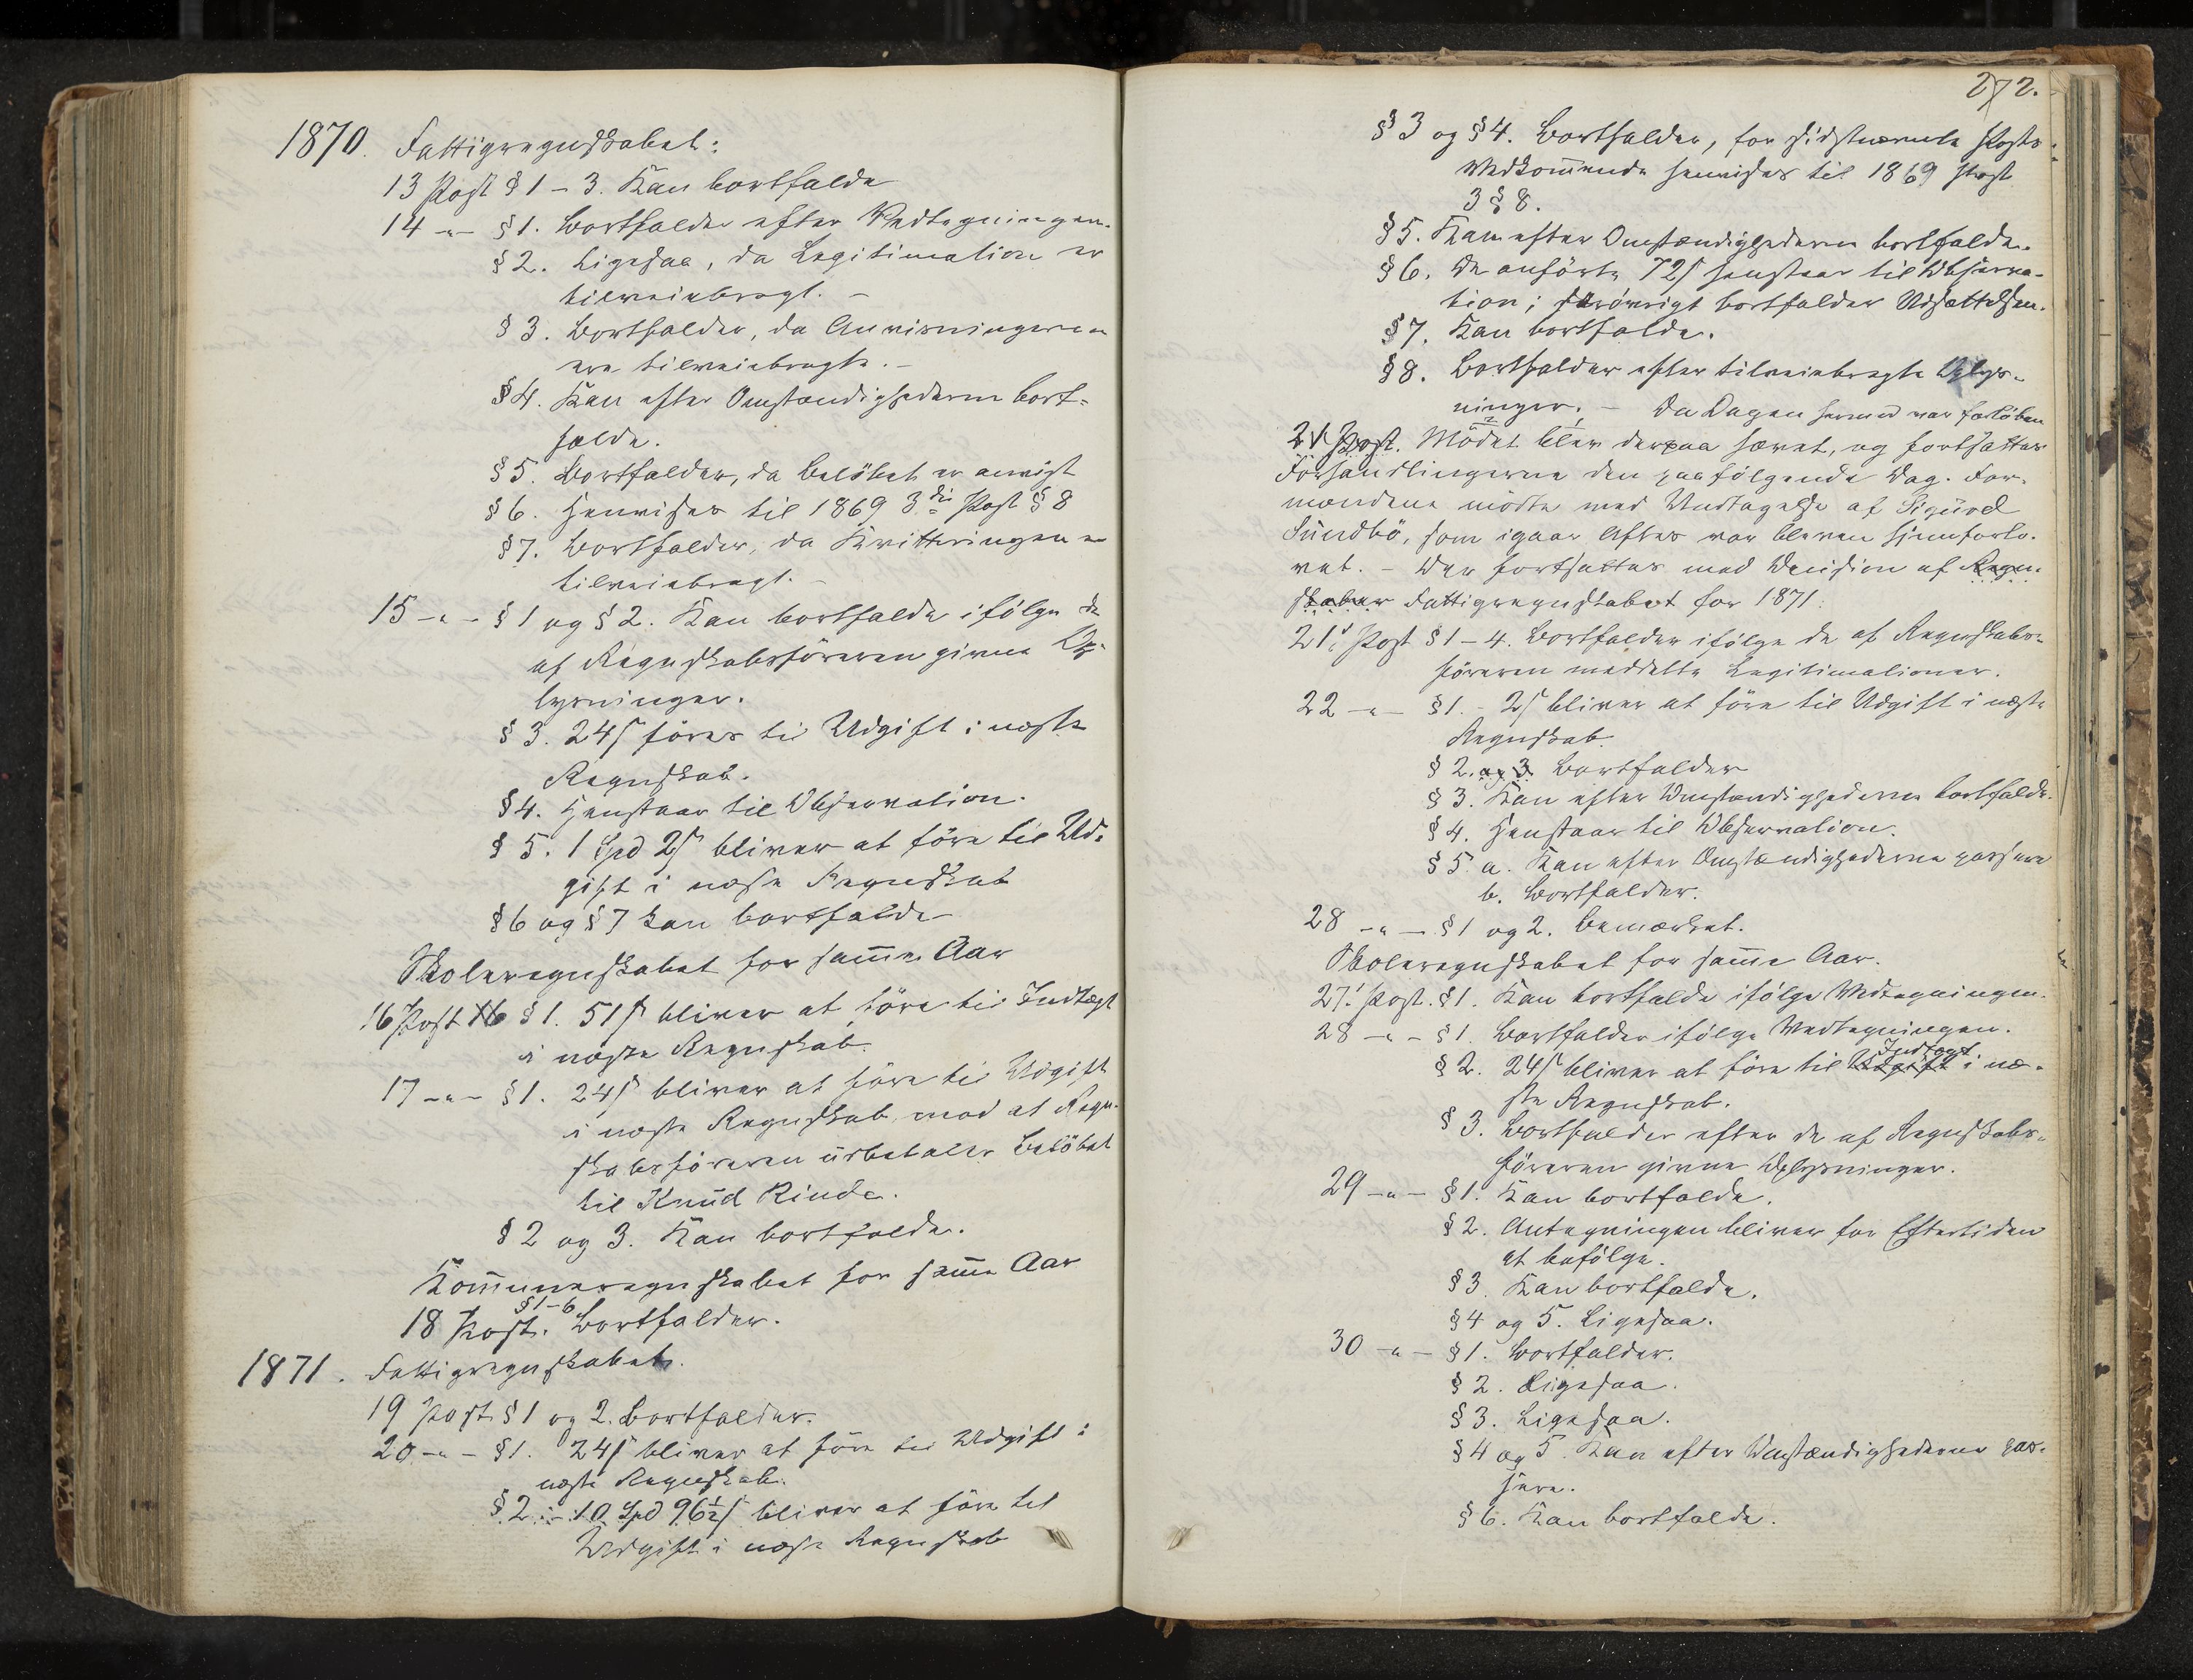 1870. Fattigregnskabet:
13 Post § 1 – 3. Kan bortfalde
14 –"– § 1. Bortfalder efter Vedtegningen.
§ 2. Ligesaa, da Legitimation er
tilveiebragt. –
§ 3. Bortfalder, da Anvisningerne
ere tilveiebragte. –
§ 4. Kan efter Omstændighederne bort-
falde.
§ 5. Bortfalder, da Beløbet er anvist
§ 6. Henvises til 1869 3die Post § 8
§ 7. Bortfalder, da Kvitteringen er
tilveiebragt. –
15 –"– § 1 og § 2. Kan bortfalde ifølge de
af Regnskabsføreren givne Op-
lysninger.
§ 3. 24 s føres til Udgift i næste
Regnskab.
§ 4. Henstaar til Observation.
§ 5. 1 Spd 2 s bliver at føre til Ud-
gift i næste Regnskab
§ 6 og § 7 kan bortfalde
Skoleregnskabet for samme Aar
16 Post § 1. 51 s bliver at føre til Indtægt
i næste Regnskab.
17 –"– § 1. 24 s bliver at føre til Udgift
i næste Regnskab mod at Regn-
skabsføreren udbetaler Beløbet
til Knud Rinde.
§ 2 og 3. Kan bortfalde.
Kommuneregnskabet for samme Aar
18 Post. § 1–6 Bortfalder.
1871. Fattigregnskabet.
19 Post § 1 og 2. Bortfalder.
20 –"– § 1. 24 s bliver at føre til Udgift i
næste Regnskab.
§ 2. – 10 Spd 96½ s bliver at føre til
Udgift i næste Regnskab
272.
§ 3 og § 4. Bortfalder, for sidstnævnte Posts
Vedkommende henvises til 1869 Post
3 § 8.
§ 5. Kan efter Omstændighederne bortfalde.
§ 6. De anførte 72 s henstaar til Observa-
tion; forøvrigt bortfalder Udsættelsen.
§ 7. Kan bortfalde.
§ 8. Bortfalder efter tilveiebragte Oplys-
ninger. – Da Dagen hermed var forløben
21 Post. Mødet blev derpaa hævet, og fortsattes
Forhandlingerne den paafølgende Dag. For-
mændene mødte med Undtagelse af Sigurd
Sundbø, som igaar Aftes var bleven hjemforlo-
vet. – Der fortsattes med Decision af Regn-
skaber Fattigregnskabet for 1871.
21 Post § 1 – 4. Bortfalder ifølge de af Regnskabs-
føreren meddelte Legitimationer.
22 –"– § 1. – 2 s bliver at føre til Udgift i næste
Regnskab.
§ 2. og 3. Bortfalder
§ 3. Kan efter Omstændighederne bortfalde.
§ 4. Henstaar til Observation.
§ 5 a. Kan efter Omstændighederne passere
b. Bortfalder.
28 –"– § 1 og 2. Bemærket.
Skoleregnskabet for samme Aar.
27. Post. § 1. Kan bortfalde ifølge Vedtegningen.
28 –"– § 1. Bortfalder ifølge Vedtegningen.
§ 2. 24 s bliver at føre til Udgift Indtægt i næ-
ste Regnskab.
§ 3. Bortfalder efter de af Regnskabs-
føreren givne Oplysninger.
29 –"– § 1. Kan bortfalde.
§ 2. Antegningen bliver for Eftertiden
at befølge.
§ 3. Kan bortfalde.
§ 4 og 5. Ligesaa.
30 –"– § 1. Bortfalder.
§ 2. Ligesaa.
§ 3. Ligesaa.
§ 4 og 5. Kan efter Omstændighederne pas-
sere.
§ 6. Kan bortfalde.